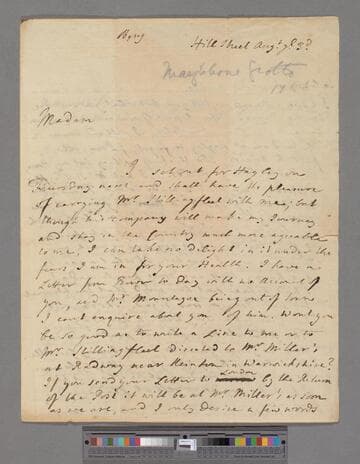 Hill Street Augt ye 3d
Madam
I set out for Hagley on
Thursday next and shall have the pleasure
of carrying Mr Stillingfleet with me, but
though his company will make my Journey
and stay in the Country much more agreeable
to me, I can take no delight in it under the
fears I am in for your Health. I have a
Letter from to Day with no account of
you, and Mr Mountague being out of town
I cant enquire about you of him. Would you
be so good as to write a Line to me or to
Mr Stillingfleet directed to Mr Miller's
at Radway near Keinton in Warwickshire?
If you send your Letter to London by the Return
of the Post it will be at Mr Miller's as soon
as we are, and I only desire a few words